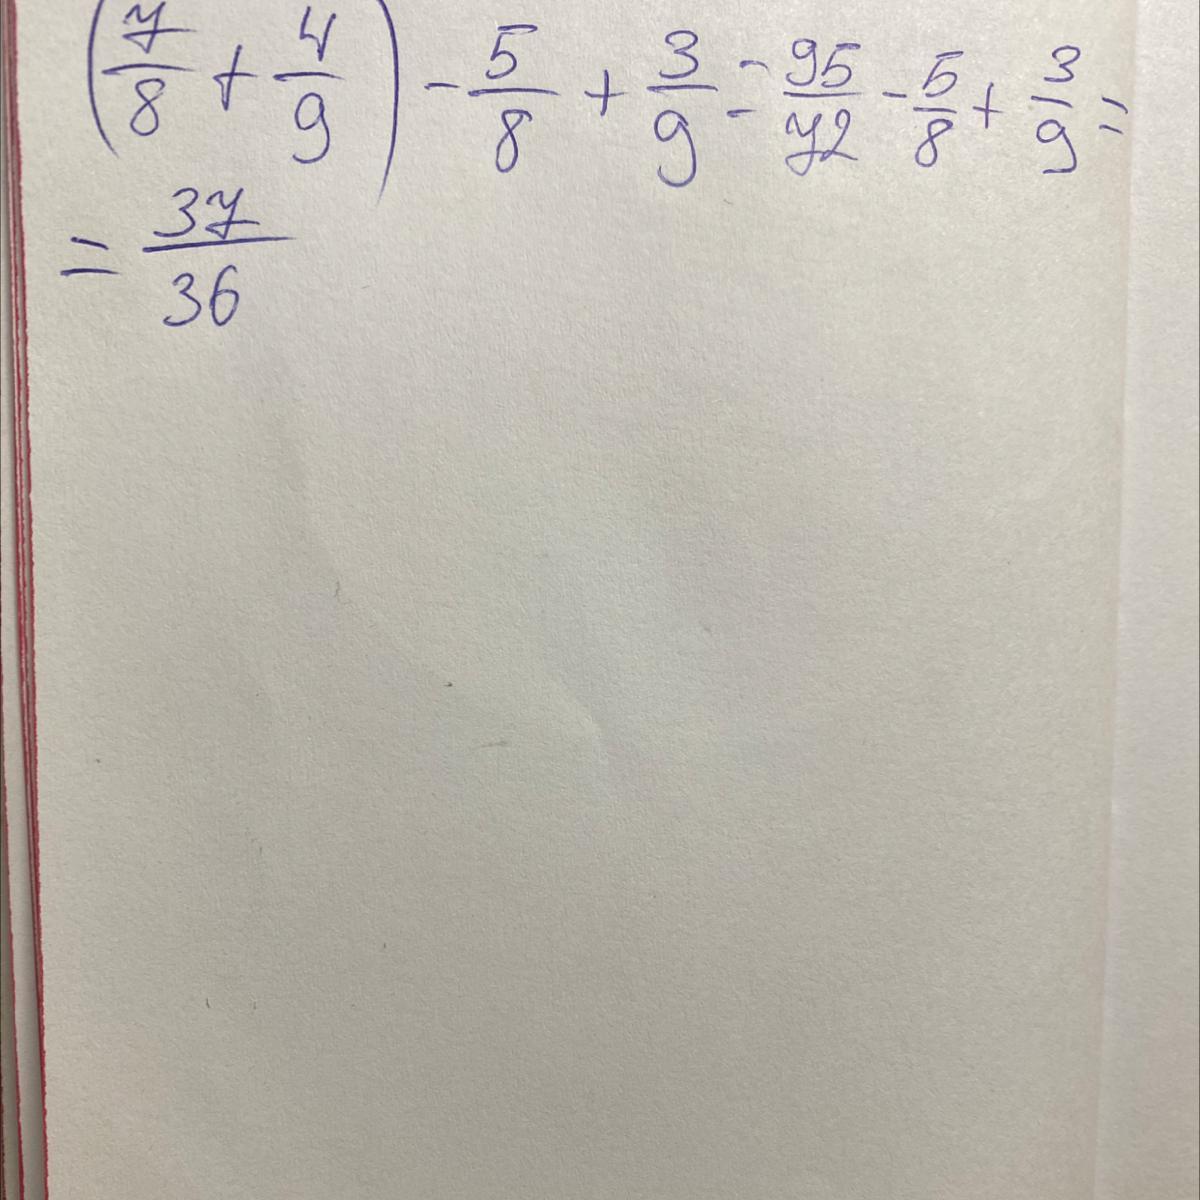 (7/8 + 4/9) - 5/8 + 3/9 = 95/72 - 5/8 + 3/9 =
= 37/36